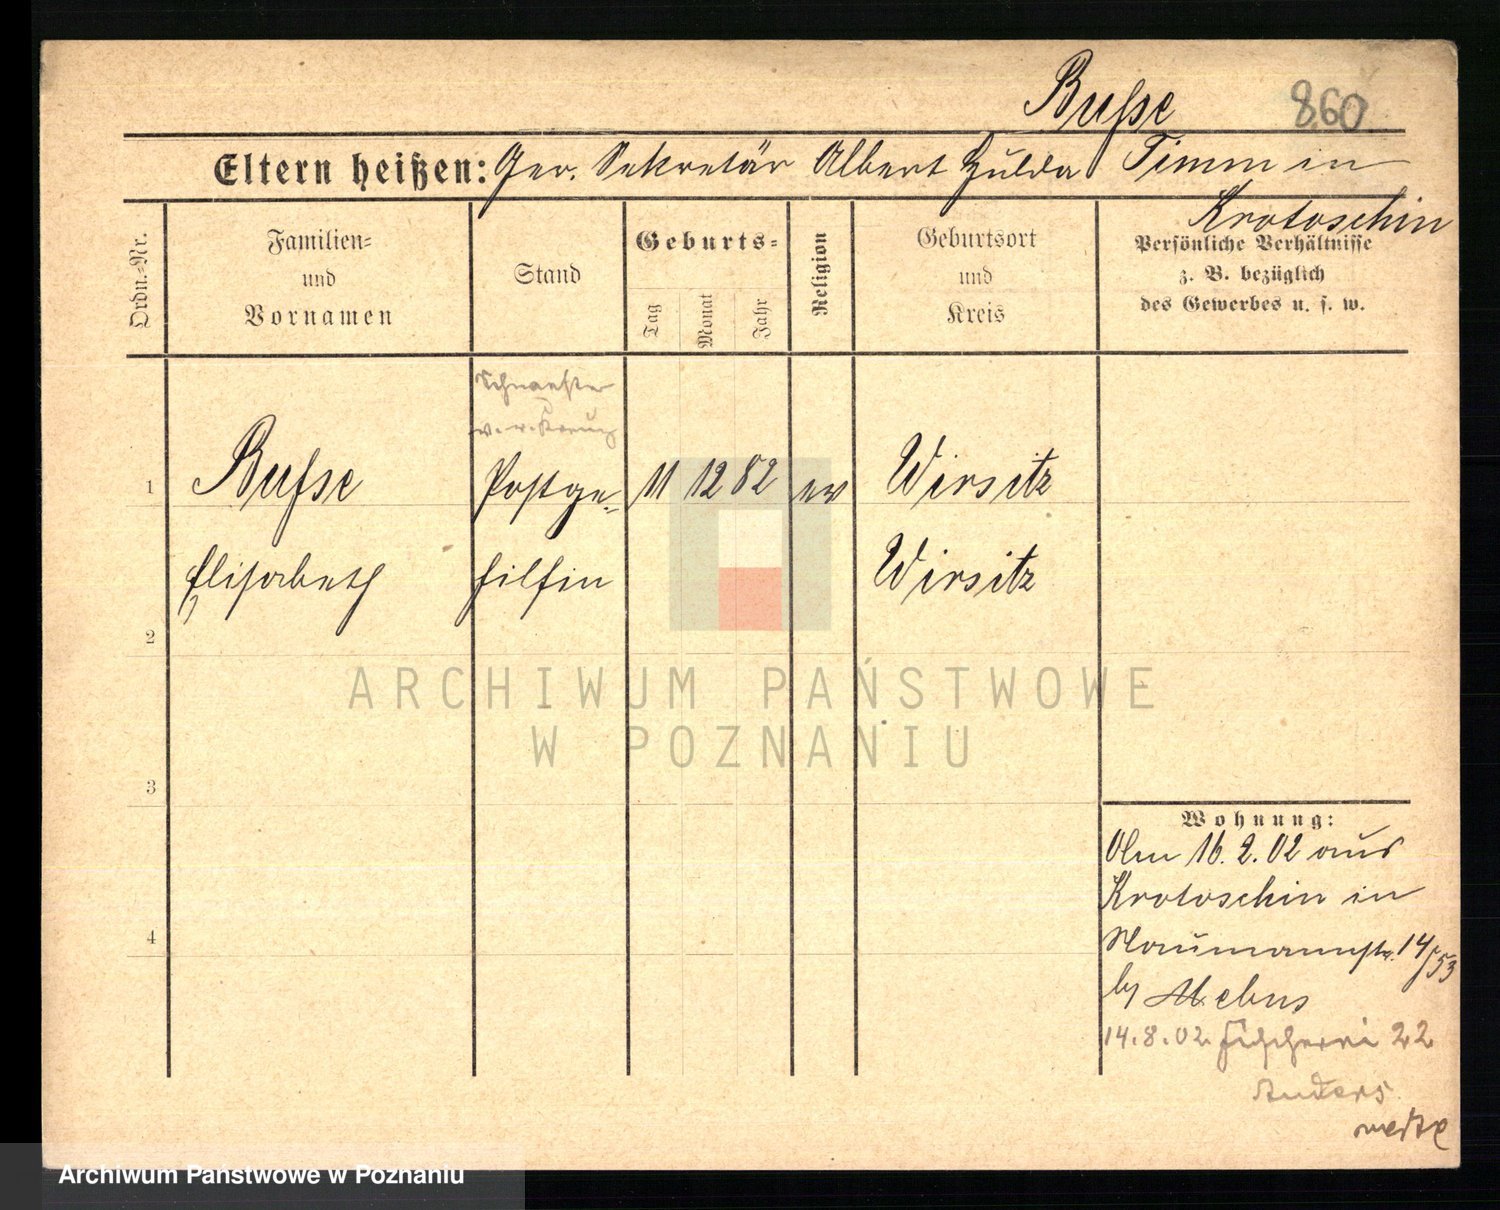 Bufse 860
Eltern heißen: Ger. Sekretär Albert Hulda Timm in
Krotoschin
Ordn.-Nr.
Familien-
und
Vornamen
Stand
Geburts-
Tag Monat Jahr
Religion
Geburtsort
und
Kreis
Persönliche Verhältnisse
z. B. bezüglich
des Gewerbes u. s. w.
1 Bufse Postge- 11 12 82 ev Wirsitz
Elisabeth hilfin Wirsitz
2
3
4
Wohnung:
Am 16.2.02 aus
Krotoschin in
Naumannstr. 14/53
by Mebus
14.8.02 Fischerei 22
Anders
ARCHIWUM PAŃSTWOWE
W POZNANIU
Archiwum Państwowe w Poznaniu